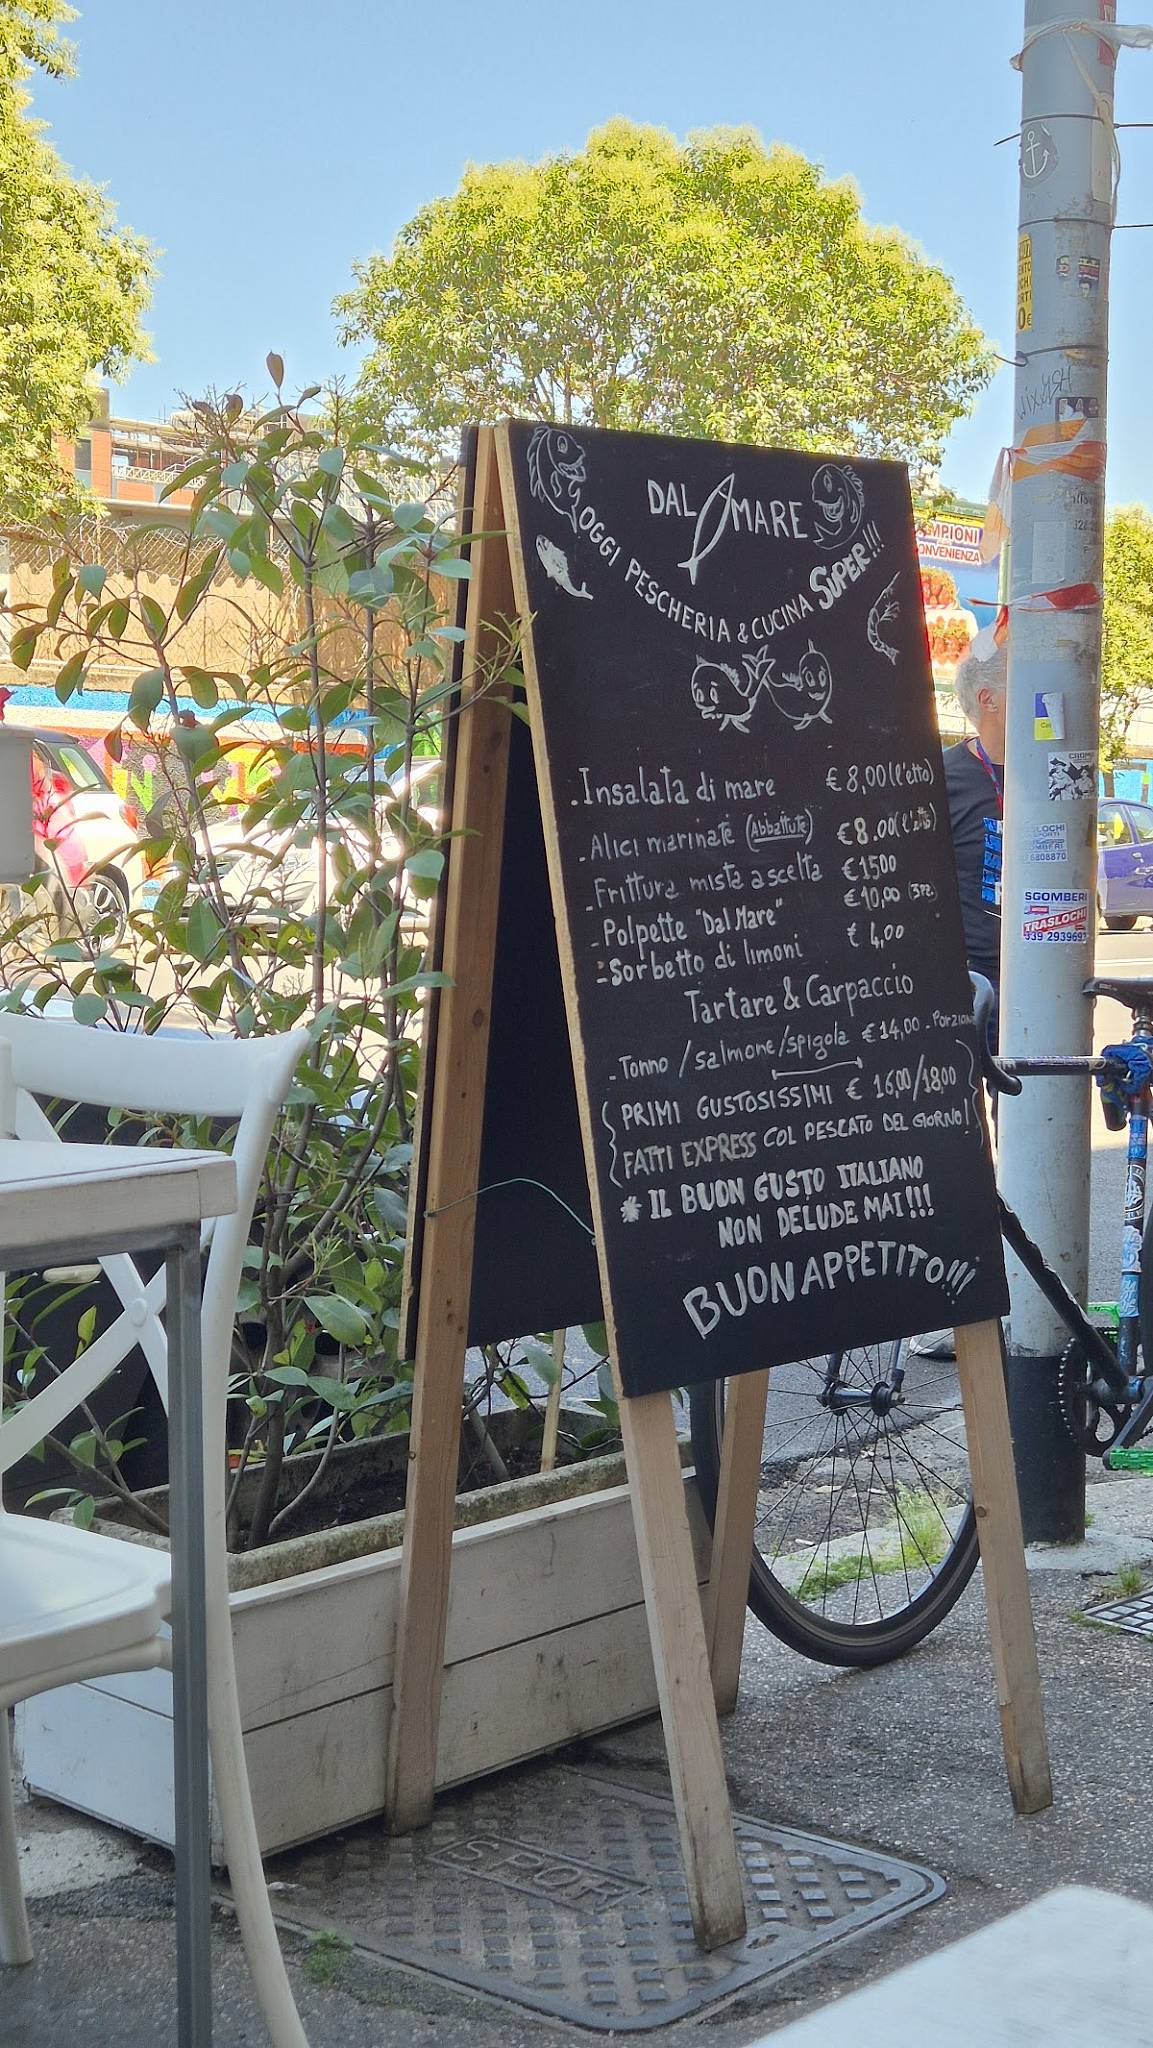 DAL MARE
OGGI PESCHERIA & CUCINA SUPER!!!
- Insalata di mare € 8,00 (l'etto)
- Alici marinate (Abbattute) € 8.00 (l'etto)
- Frittura mista a scelta € 1500
- Polpette "Dal Mare" € 10,00 (3pz.)
- Sorbetto di limoni € 4,00
Tartare & Carpaccio
- Tonno / salmone / spigola € 14,00 - Porzione
PRIMI GUSTOSISSIMI € 16,00/18,00
FATTI EXPRESS COL PESCATO DEL GIORNO!
* IL BUON GUSTO ITALIANO
NON DELUDE MAI!!!
BUON APPETITO!!!
CONVENIENZA
SGOMBERI
TRASLOCHI
SPOR